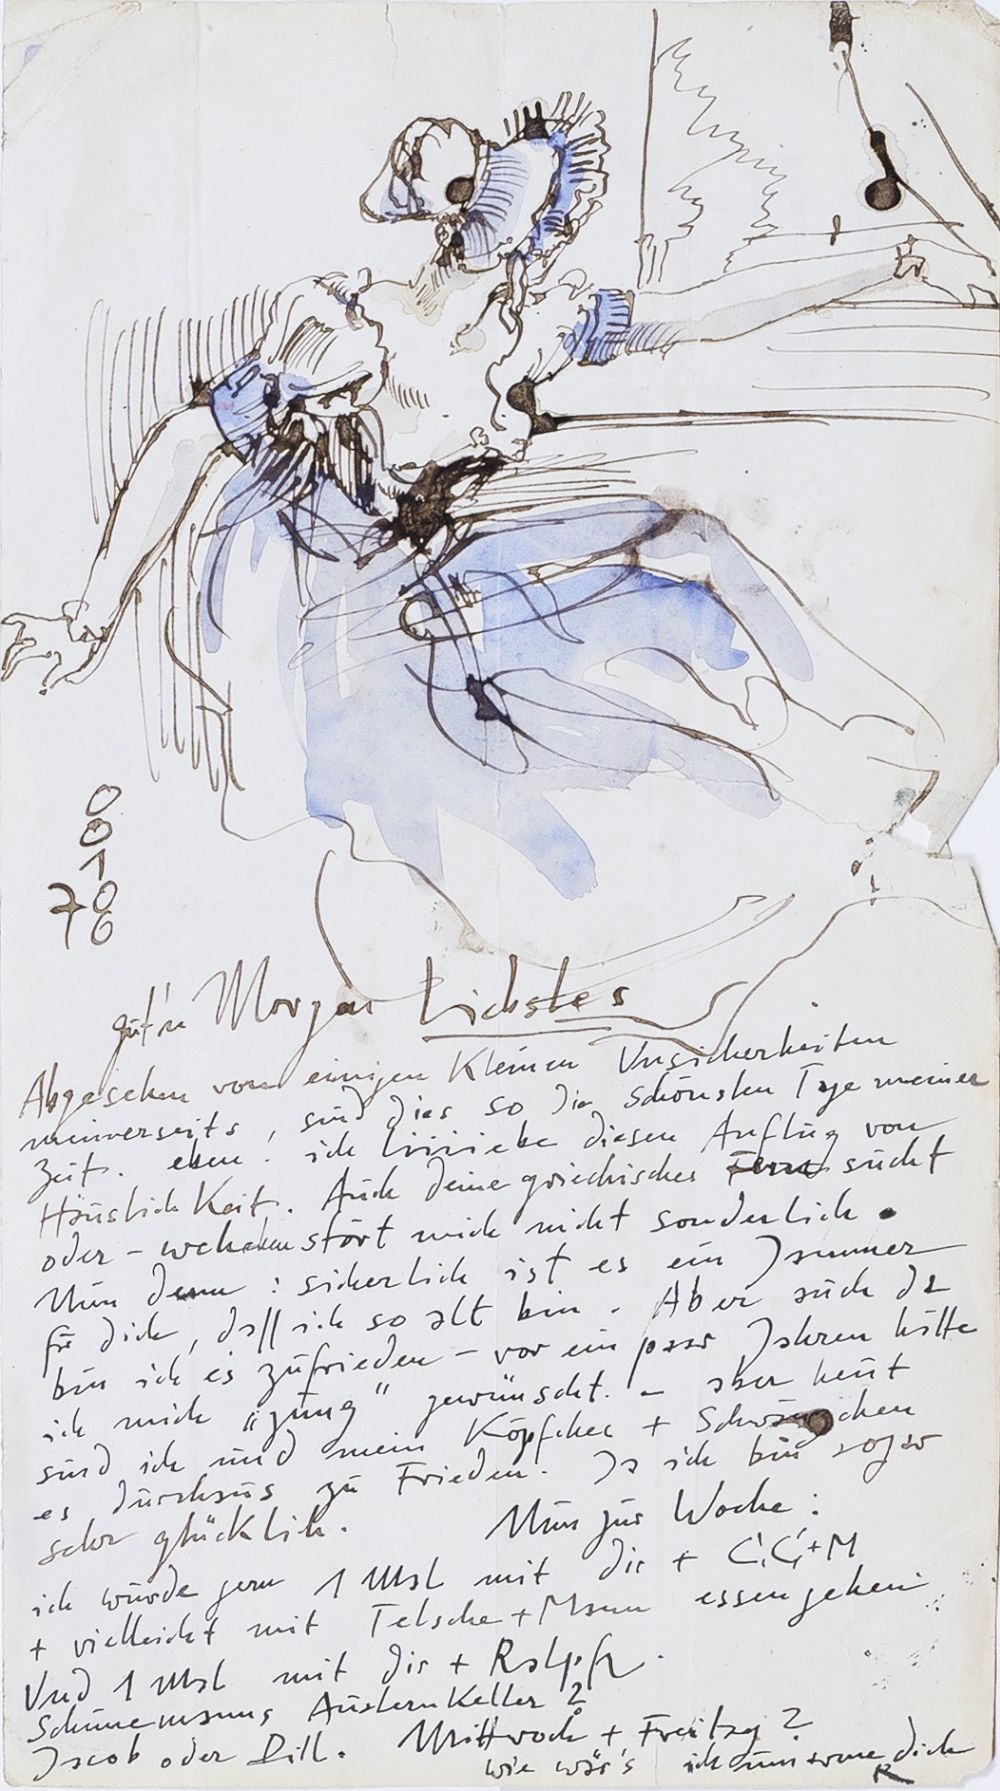 8
8
1
8
76
gut'n Morgen Liebstes
Abgesehen von einigen Kleinen Unsicherheiten
meinerseits, sind dies so die schönsten Tage meiner
Zeit. eben! ich liiiiebe diesen Anflug von
Häuslichkeit. Auch deine griechisches sucht
oder – stört mich nicht sonderlich.
Nun denn: sicherlich ist es ein Jammer
für dich, daß ich so alt bin. Aber auch da
bin ich es zufrieden – vor ein paar Jahren hätte
ich mich „jung" gewünscht. – aber heut
sind ich und mein Köpfchen + Schwänzchen
es durchaus zu Frieden. Ja ich bin sogar
sehr glücklich. Nun zur Woche:
ich würde gern 1 Mal mit dir + C, C, + M
+ vielleicht mit Telsche + Mann essen gehen
Und 1 Mal mit dir + Ralph.
Schümanns Austernkeller?
Jacob oder Dill. Mittwoch + Freitag?
wie wär's ich dich